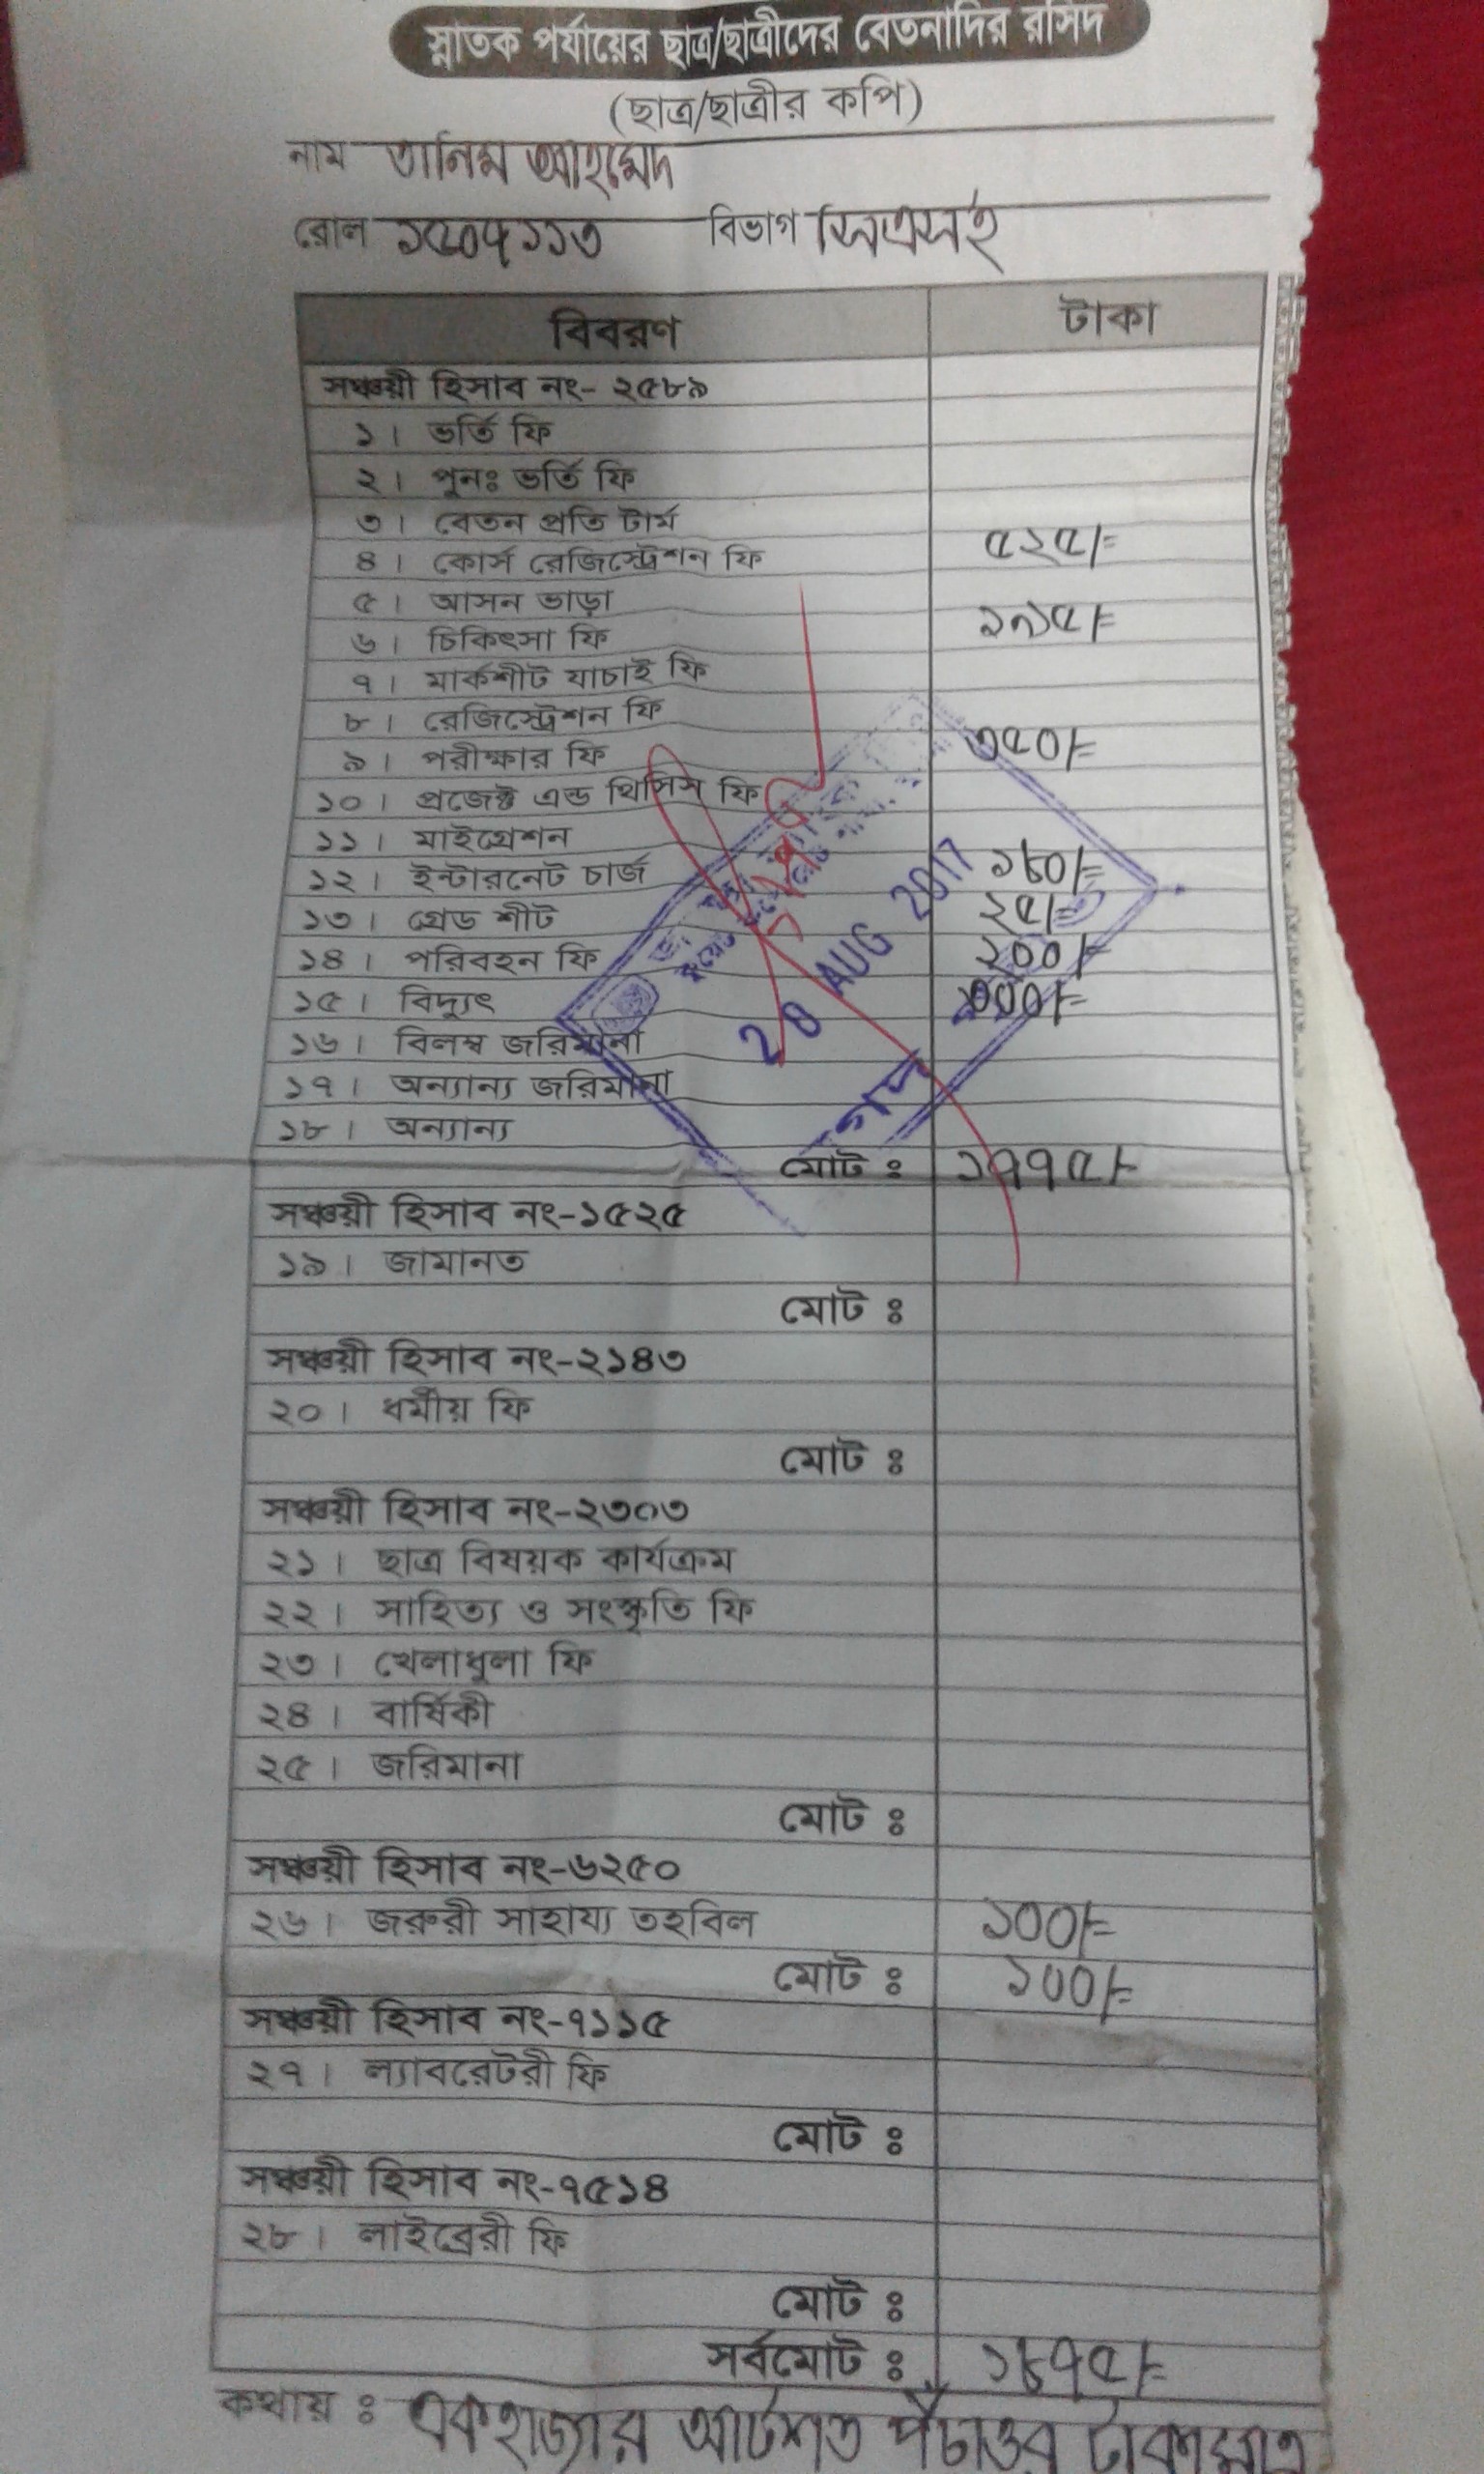 স্নাতক পর্যায়ের ছাত্র/ছাত্রীদের বেতনাদির রসিদ
(ছাত্র/ছাত্রীর কপি)
নাম তানিম আহমেদ
রোল ১৫০৭১১৩ বিভাগ সিএসই
বিবরণ টাকা
সঞ্চয়ী হিসাব নং- ২৫৮৯
১। ভর্তি ফি
২। পুনঃ ভর্তি ফি
৩। বেতন প্রতি টার্ম
৪। কোর্স রেজিস্ট্রেশন ফি ৫২৫/=
৫। আসন ভাড়া
৬। চিকিৎসা ফি
৭। মার্কশীট যাচাই ফি
৮। রেজিস্ট্রেশন ফি
৯। পরীক্ষার ফি ৩৫০/=
১০। প্রজেক্ট এন্ড থিসিস ফি
১১। মাইগ্রেশন
১২। ইন্টারনেট চার্জ ১৮০/=
১৩। গ্রেড শীট ২৫/=
১৪। পরিবহন ফি ২০০/=
১৫। বিদ্যুৎ
28 AUG 2017
১৬। বিলম্ব জরিমানা
১৭। অন্যান্য জরিমানা
১৮। অন্যান্য
মোট ঃ ১৭৭৫/=
সঞ্চয়ী হিসাব নং-১৫২৫
১৯। জামানত
মোট ঃ
সঞ্চয়ী হিসাব নং-২১৪৩
২০। ধর্মীয় ফি
মোট ঃ
সঞ্চয়ী হিসাব নং-২৩০৩
২১। ছাত্র বিষয়ক কার্যক্রম
২২। সাহিত্য ও সংস্কৃতি ফি
২৩। খেলাধুলা ফি
২৪। বার্ষিকী
২৫। জরিমানা
মোট ঃ
সঞ্চয়ী হিসাব নং-৬২৫০
২৬। জরুরী সাহায্য তহবিল ১০০/=
মোট ঃ ১০০/=
সঞ্চয়ী হিসাব নং-৭১১৫
২৭। ল্যাবরেটরী ফি
মোট ঃ
সঞ্চয়ী হিসাব নং-৭৫১৪
২৮। লাইব্রেরী ফি
মোট ঃ
সর্বমোট ঃ ১৮৭৫/=
কথায় ঃ একহাজার আটশত পঁচাত্তর টাকামাত্র